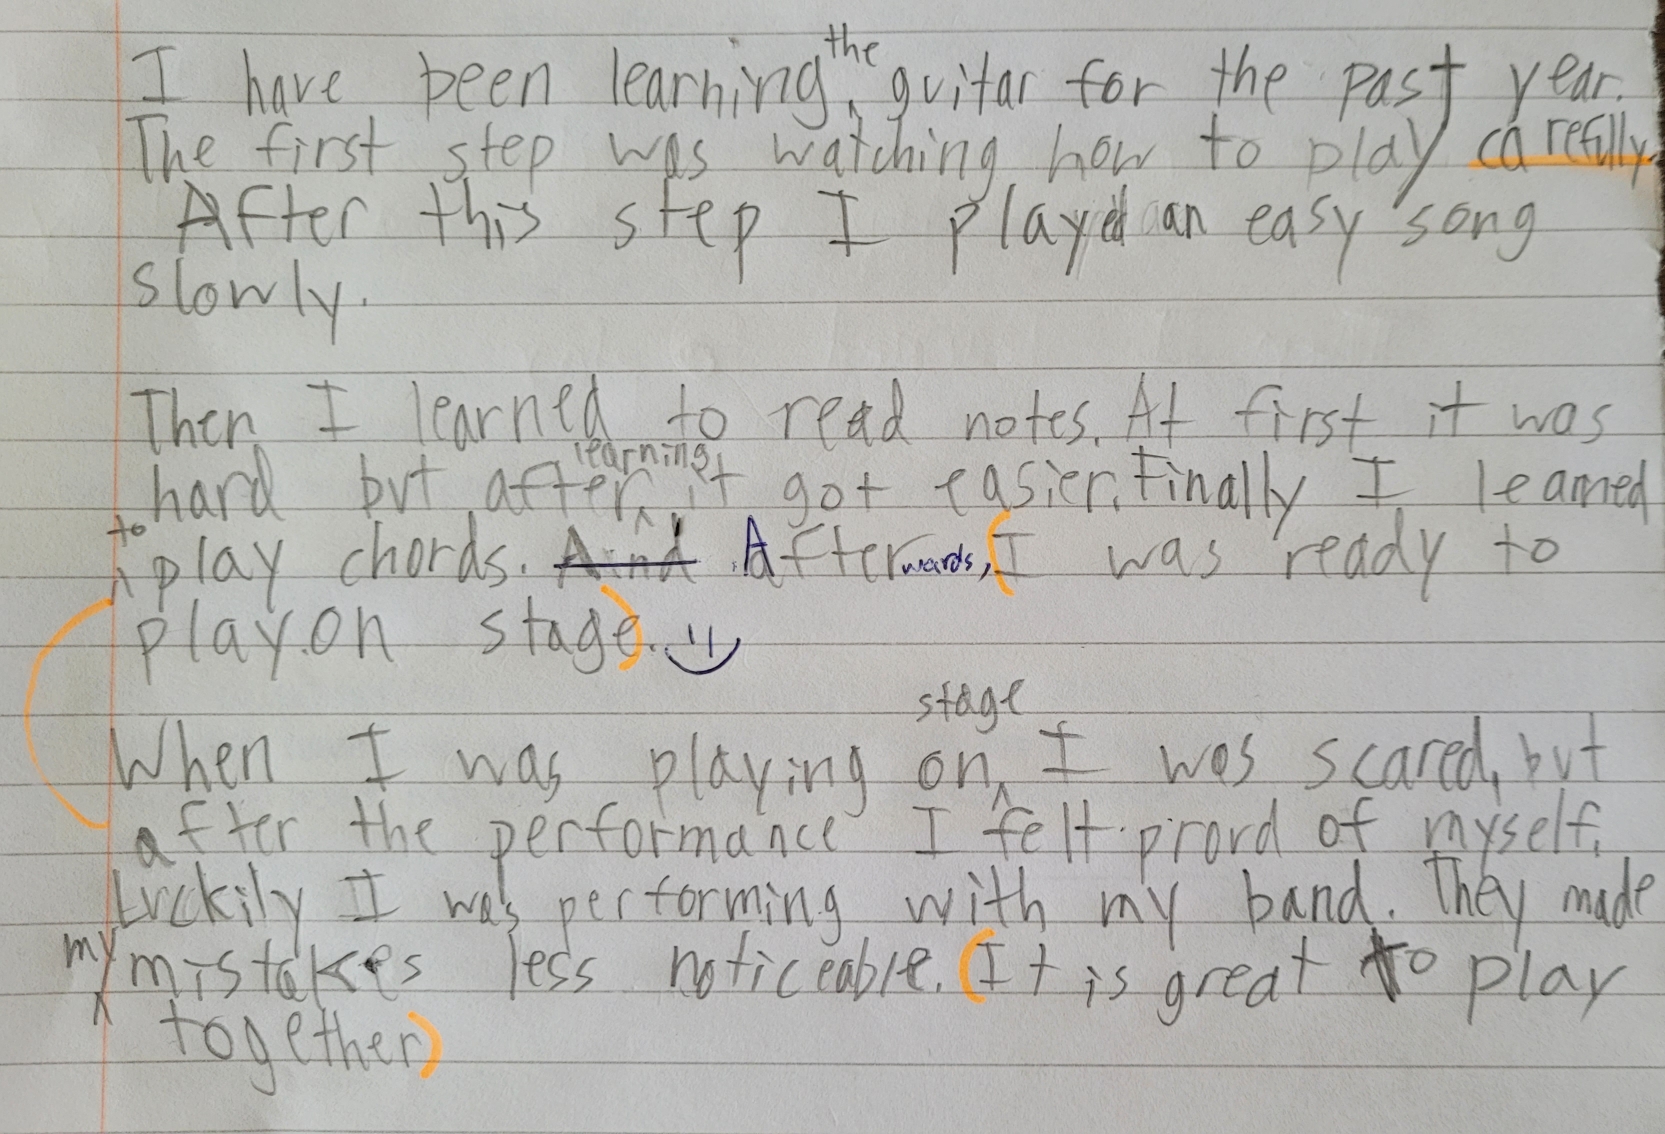 I have been learning the guitar for the past year.
The first step was watching how to play carefilly.
After this step I played an easy song
slowly.
Then I learned to read notes. At first it was
hard but after learning it got easier. Finally I learned
to play chords. And Afterwards, (I was ready to
play on stage).
When I was playing on stage I was scared, but
after the performance I felt prord of myself.
Luckily I was performing with my band. They made
my mistakes less noticeable. (It is great to play
together)